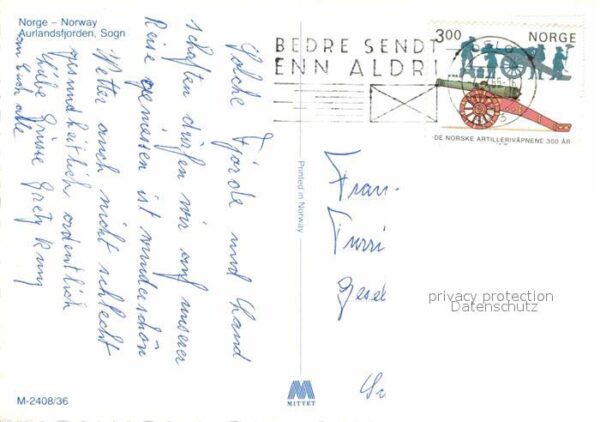 Norge – Norway
Aurlandsfjorden, Sogn
Solche Fjorde und Land
schaften dürfen wir auf unserer
Reise geniessen ist wunderschön
Wetter auch nicht schlecht
gesundheitlich ordentlich
Liebe Grüsse Grety Kunz
an Euch alle
Printed in Norway
M-2408/36
MITTET
BEDRE SENDT
ENN ALDRI
OSLO
3.00 NORGE
DE NORSKE ARTILLERIVÅPNENE 300 ÅR
Turri
privacy protection
Datenschutz